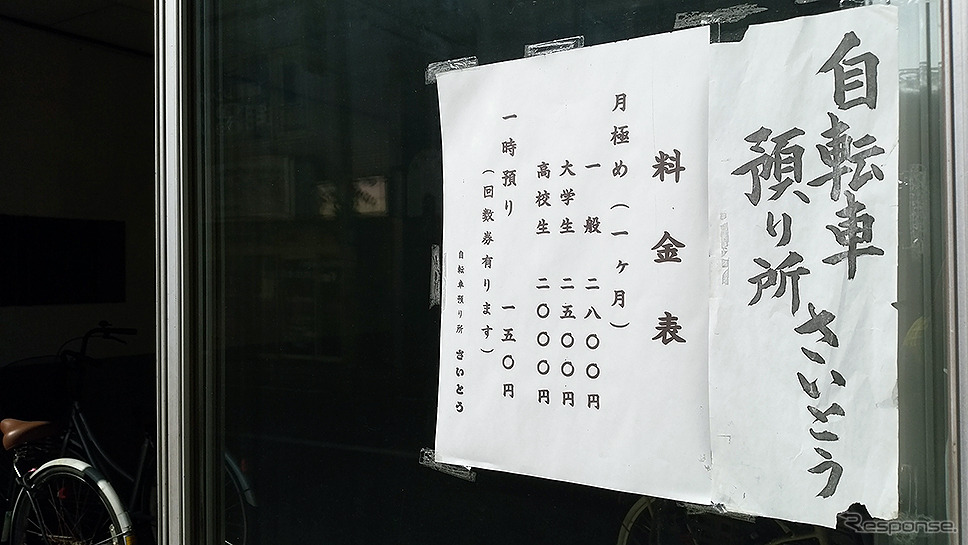 自転車
預り所
さいとう
料金表
月極め（一ヶ月）
一般 二八〇〇円
大学生 二五〇〇円
高校生 二〇〇〇円
一時預り 一五〇円
（回数券有ります）
自転車預り所 さいとう
Response.